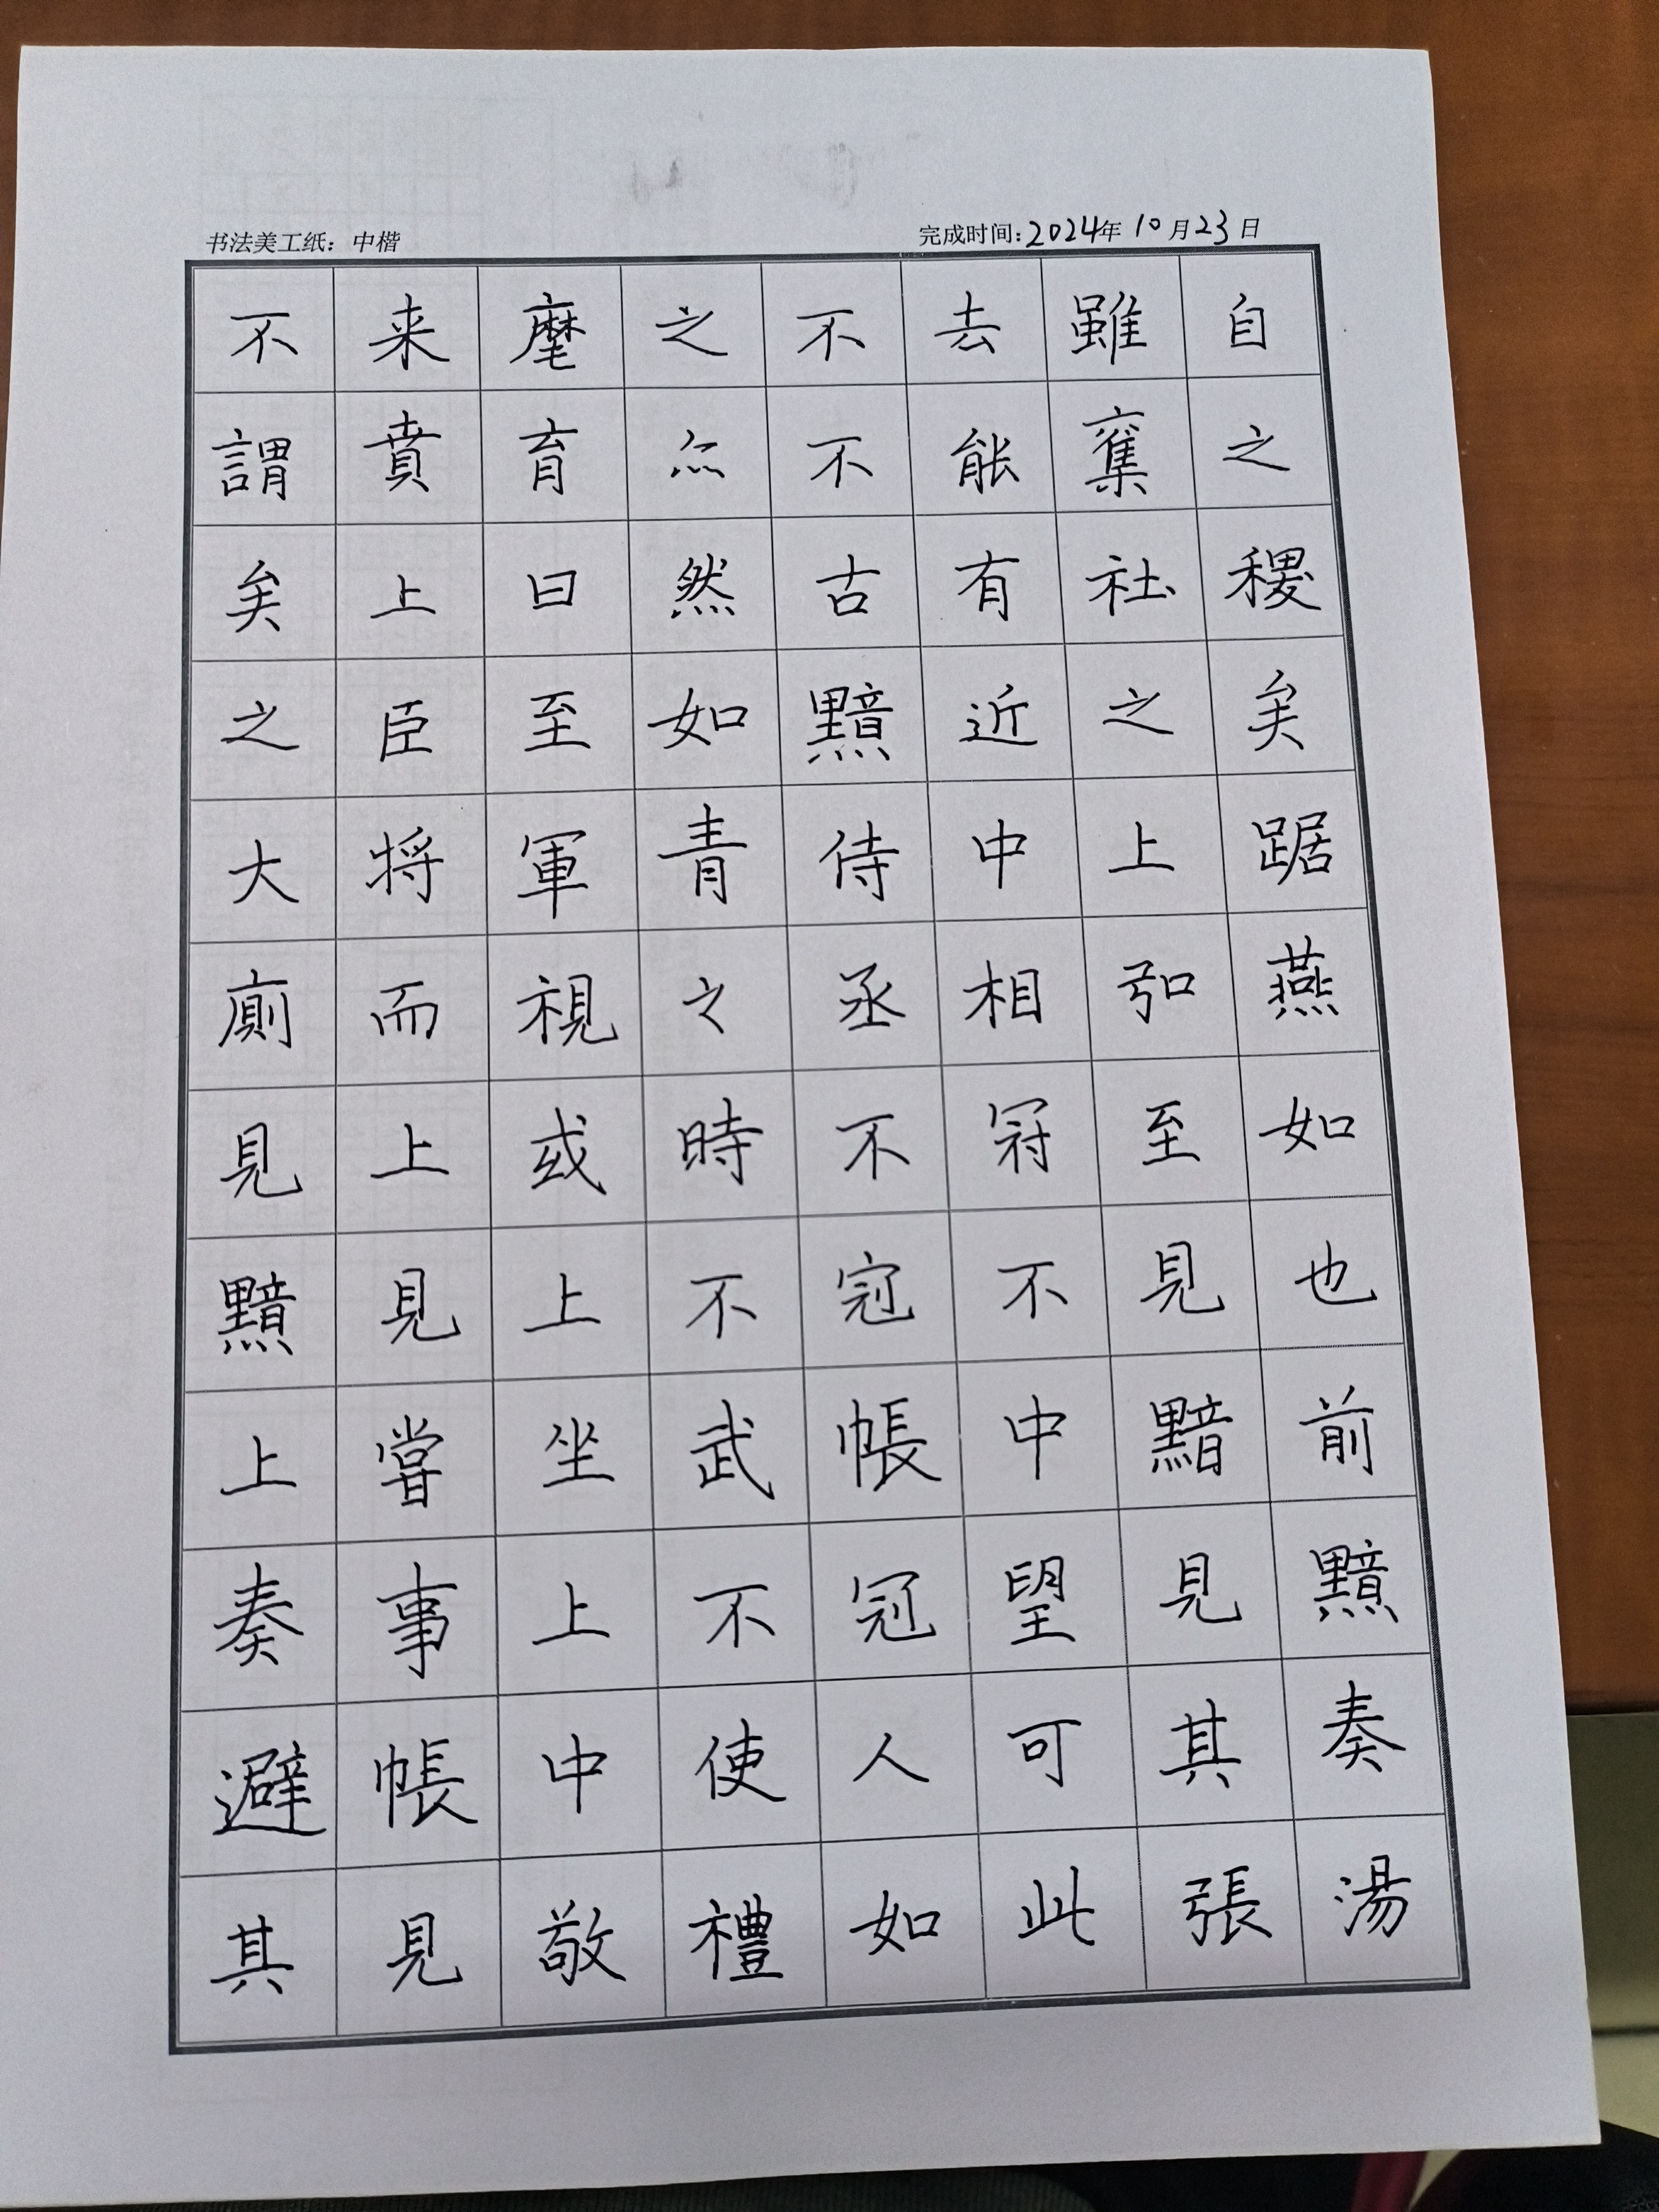 书法美工纸：中楷
完成时间：2024年10月23日
不来麾之不去雖自
謂賁育亦不能奪之
矣上曰然古有社稷
之臣至如黯近之矣
大将軍青侍中上踞
廁而視之丞相弘燕
見上或時不冠至如
黯見上不冠不見也
上嘗坐武帳中黯前
奏事上不冠望見黯
避帳中使人可其奏
其見敬禮如此張湯